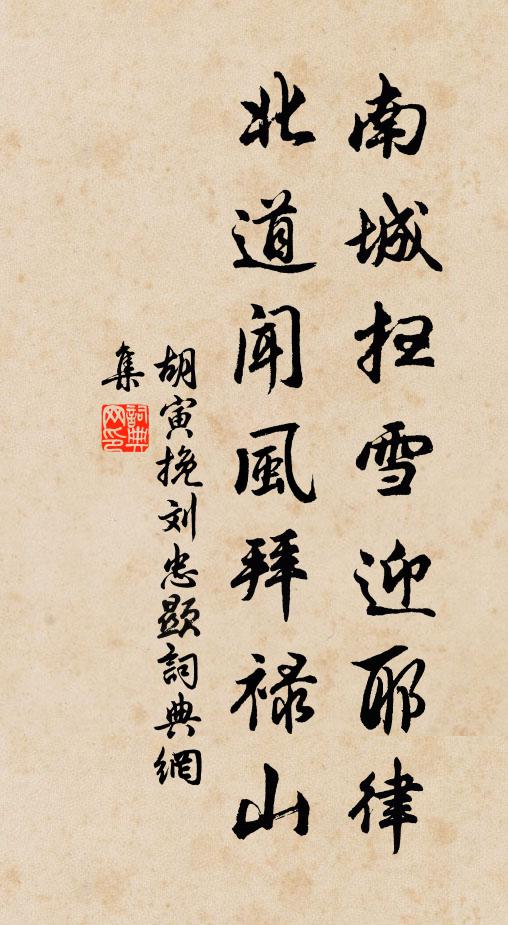 南城扫雪迎耶律
北道闻風拜禄山
胡寅挽刘忠顯詞典網
集
詞典
网印